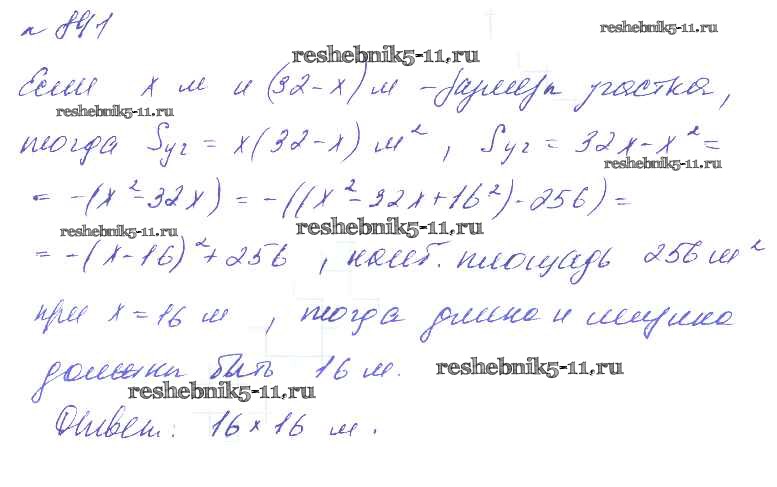 № 891
reshebnik5-11.ru
reshebnik5-11.ru
Если x м и (32-x) м - размеры участка,
reshebnik5-11.ru
тогда Sуч = x(32-x) м², Sуч = 32x-x² =
reshebnik5-11.ru
= -(x²-32x) = -((x²-32x+16²)-256) =
reshebnik5-11.ru
reshebnik5-11.ru
= -(x-16)²+256, наиб. площадь 256 м²
при x = 16 м, тогда длина и ширина
должны быть 16 м.
reshebnik5-11.ru
reshebnik5-11.ru
Ответ: 16×16 м.